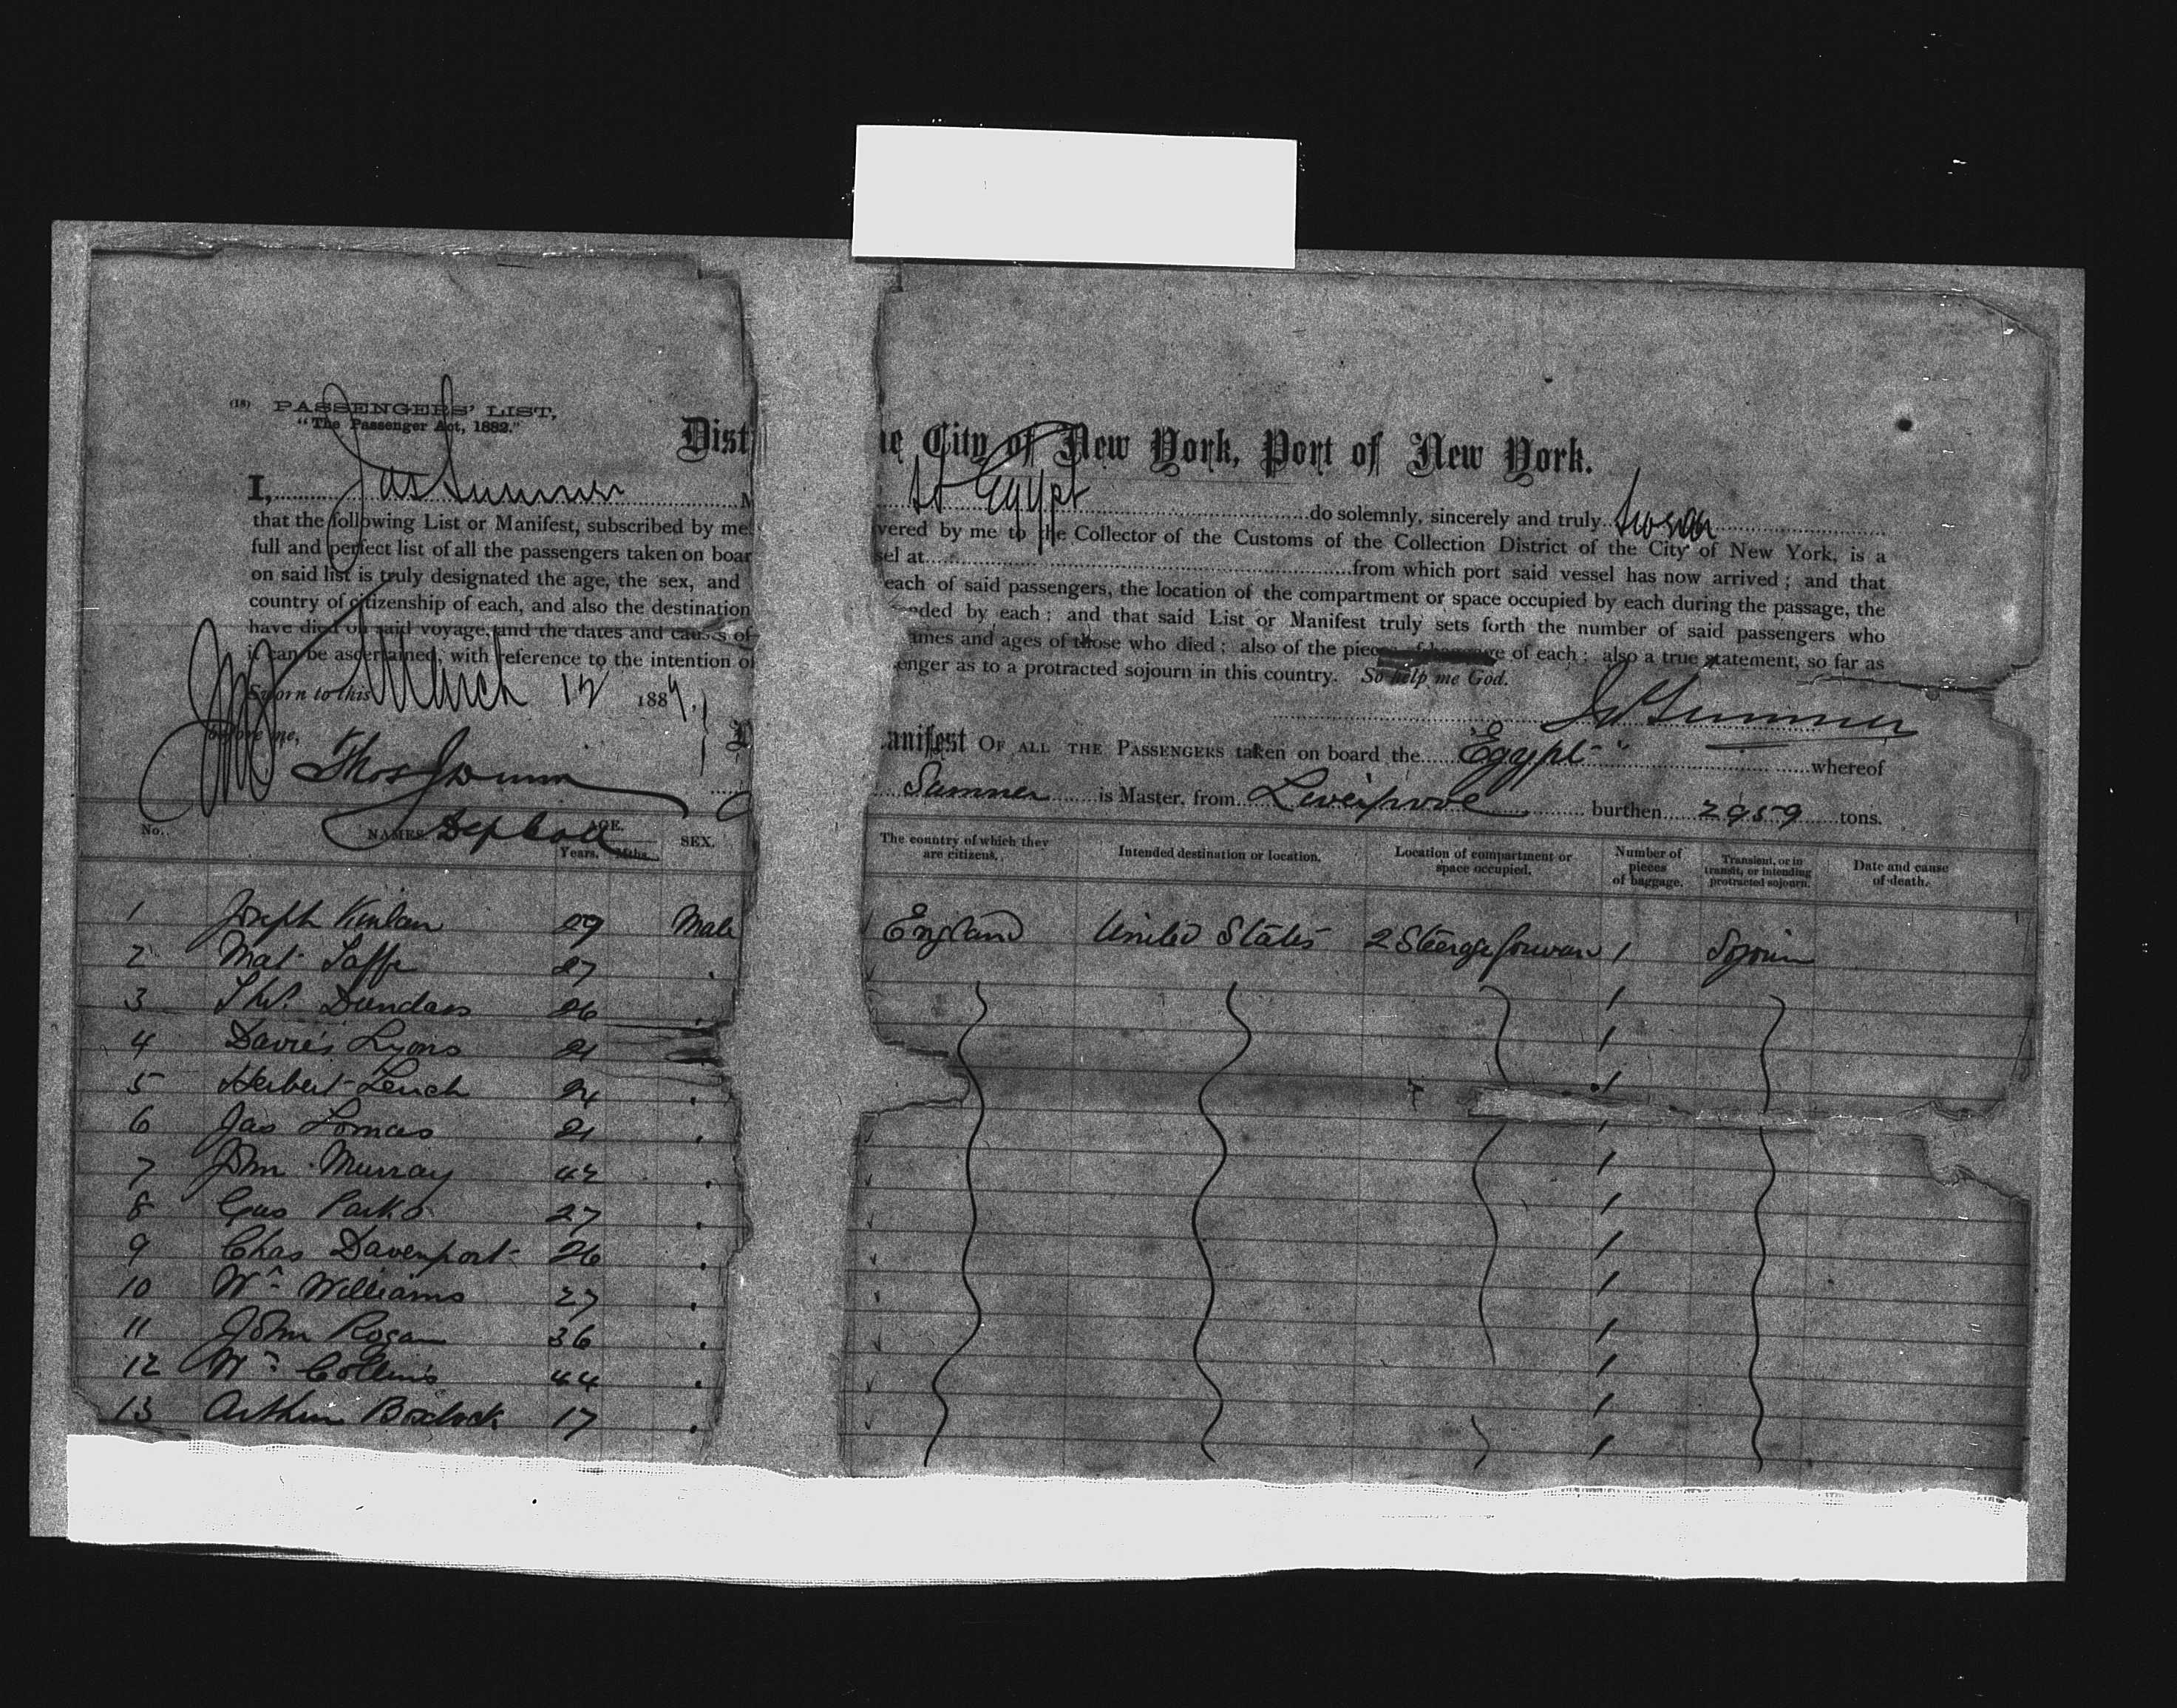 (18) PASSENGERS' LIST,
"The Passenger Act, 1882."
Dist he City of New York, Port of New York.
I, Jas Sumner M SS Egypt do solemnly, sincerely and truly swear
that the following List or Manifest, subscribed by me vered by me to the Collector of the Customs of the Collection District of the City of New York, is a
full and perfect list of all the passengers taken on boar sel at from which port said vessel has now arrived; and that
on said list is truly designated the age, the sex, and each of said passengers, the location of the compartment or space occupied by each during the passage, the
country of citizenship of each, and also the destination ended by each; and that said List or Manifest truly sets forth the number of said passengers who
have died on said voyage, and the dates and causes of ames and ages of those who died; also of the pieces of baggage of each; also a true statement, so far as
it can be ascertained, with reference to the intention of enger as to a protracted sojourn in this country. So help me God.
Sworn to this March 12 188
Jas Sumner
before me,
Thos
anifest OF ALL THE PASSENGERS taken on board the "Egypt" whereof
Sumner is Master, from Liverpool burthen 2959 tons.
Dep Coll
No. NAMES. AGE. Years. Mths. SEX. The country of which they are citizens. Intended destination or location. Location of compartment or space occupied. Number of pieces of baggage. Transient, or in transit, or intending protracted sojourn. Date and cause of death.
1 Joseph Kinlan 29 Male England United States 2 Steerage forward 1 Sojourn
2 Mat Taffe 27 1
3 Dundass 26 1
4 Davies Lyons 21 1
5 Herbert Leach 24 1
6 Jas Lomas 21 1
7 John Murray 42 1
8 Geo Parks 27 1
9 Chas Davenport 26 1
10 Wm Williams 27 1
11 John Rogan 36 1
12 Wm Collins 44 1
13 Arthur 17 1